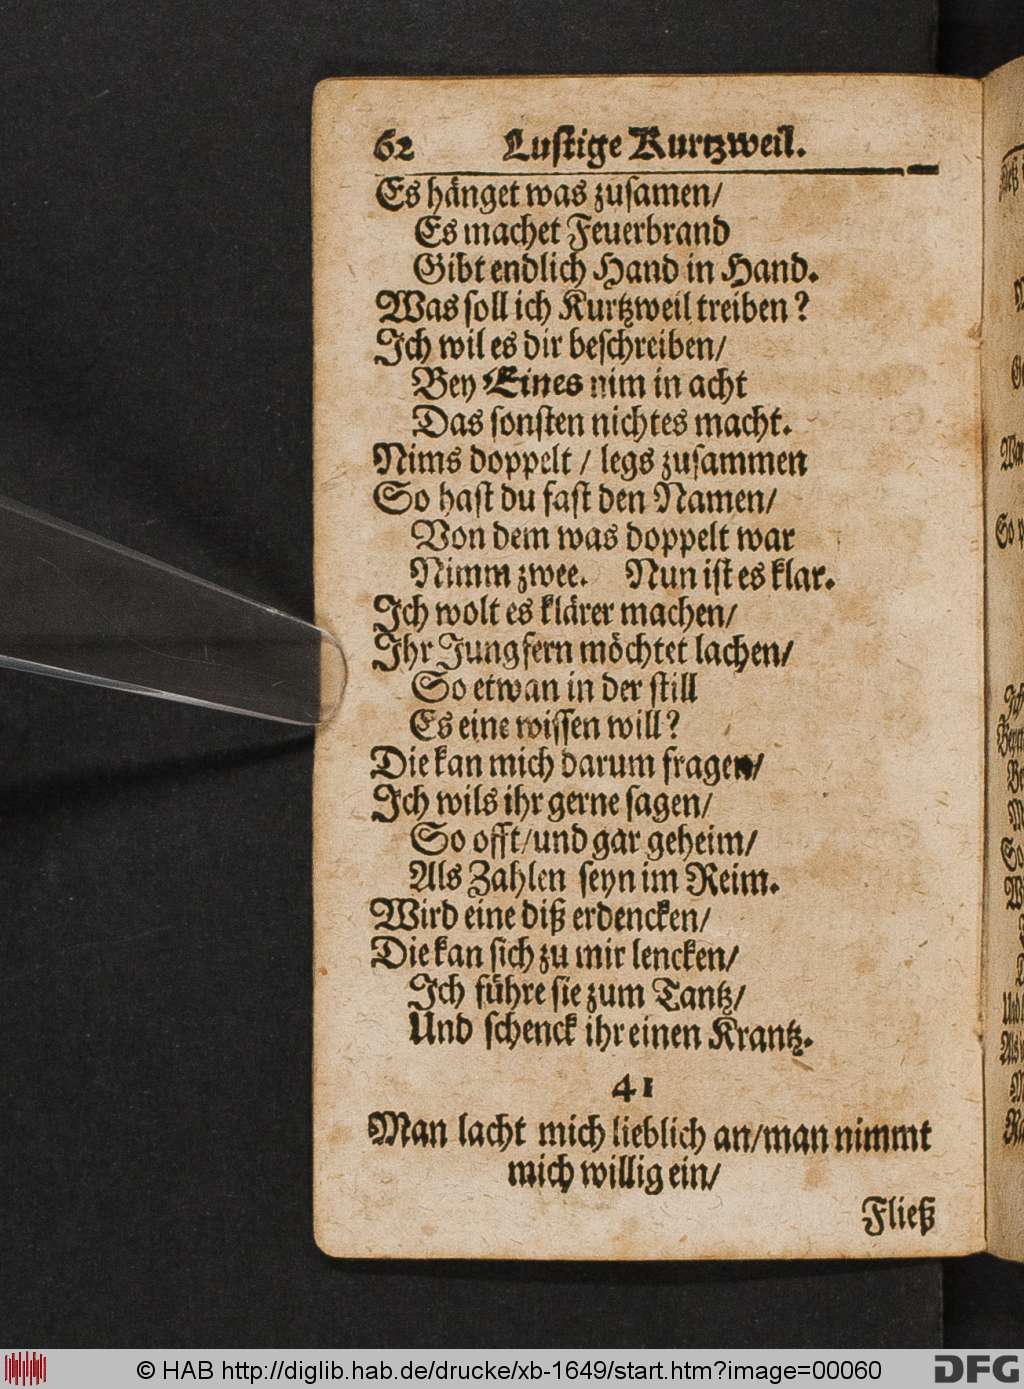 62 Lustige Kurtzweil.
Es hänget was zusamen/
Es machet Feuerbrand
Gibt endlich Hand in Hand.
Was soll ich Kurtzweil treiben?
Ich wil es dir beschreiben/
Bey Eines nim in acht
Das sonsten nichtes macht.
Nims doppelt / legs zusammen
So hast du fast den Namen/
Von dem was doppelt war
Nimm zwee. Nun ist es klar.
Ich wolt es klärer machen/
Ihr Jungfern möchtet lachen/
So etwan in der still
Es eine wissen will?
Die kan mich darum fragen/
Ich wils ihr gerne sagen/
So offt/und gar geheim/
Als Zahlen seyn im Reim.
Wird eine diß erdencken/
Die kan sich zu mir lencken/
Ich führe sie zum Tantz/
Und schenck ihr einen Krantz.
41
Man lacht mich lieblich an/man nimmt
mich willig ein/
Fließ
© HAB http://diglib.hab.de/drucke/xb-1649/start.htm?image=00060
DFG